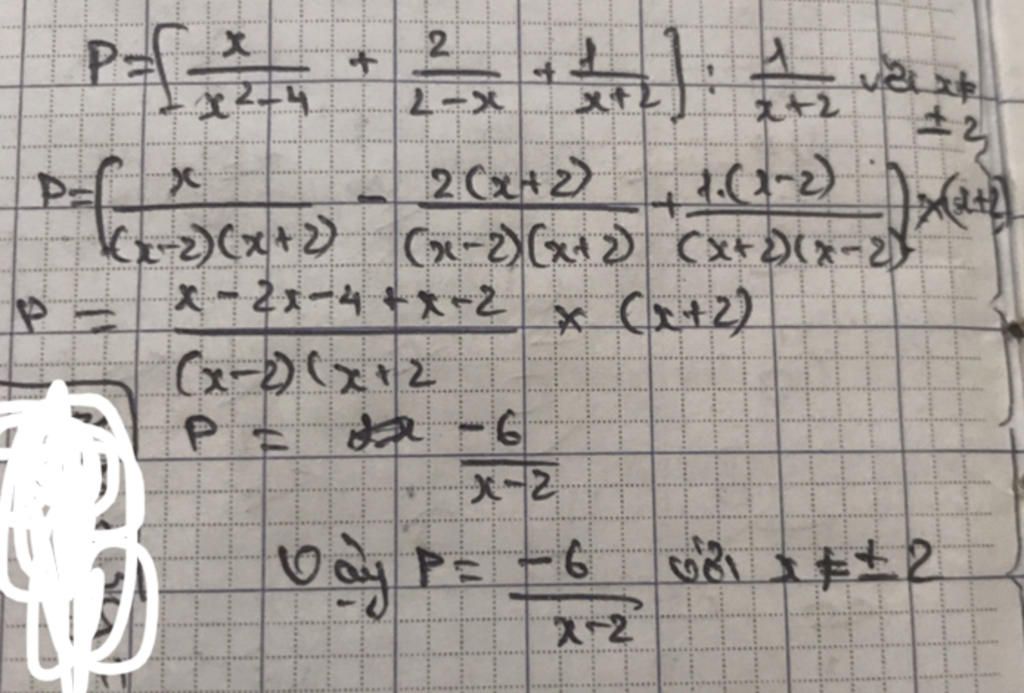 P=[x/(x²-4) + 2/(2-x) + 1/(x+2)] : 1/(x+2) với x≠ ±2
P=(x/((x-2)(x+2)) - 2(x+2)/((x-2)(x+2)) + 1.(x-2)/((x+2)(x-2))) x (x+2)
P = (x-2x-4+x-2)/((x-2)(x+2) x (x+2)
P = -6/(x-2)
Vậy P= -6/(x-2) với x≠±2